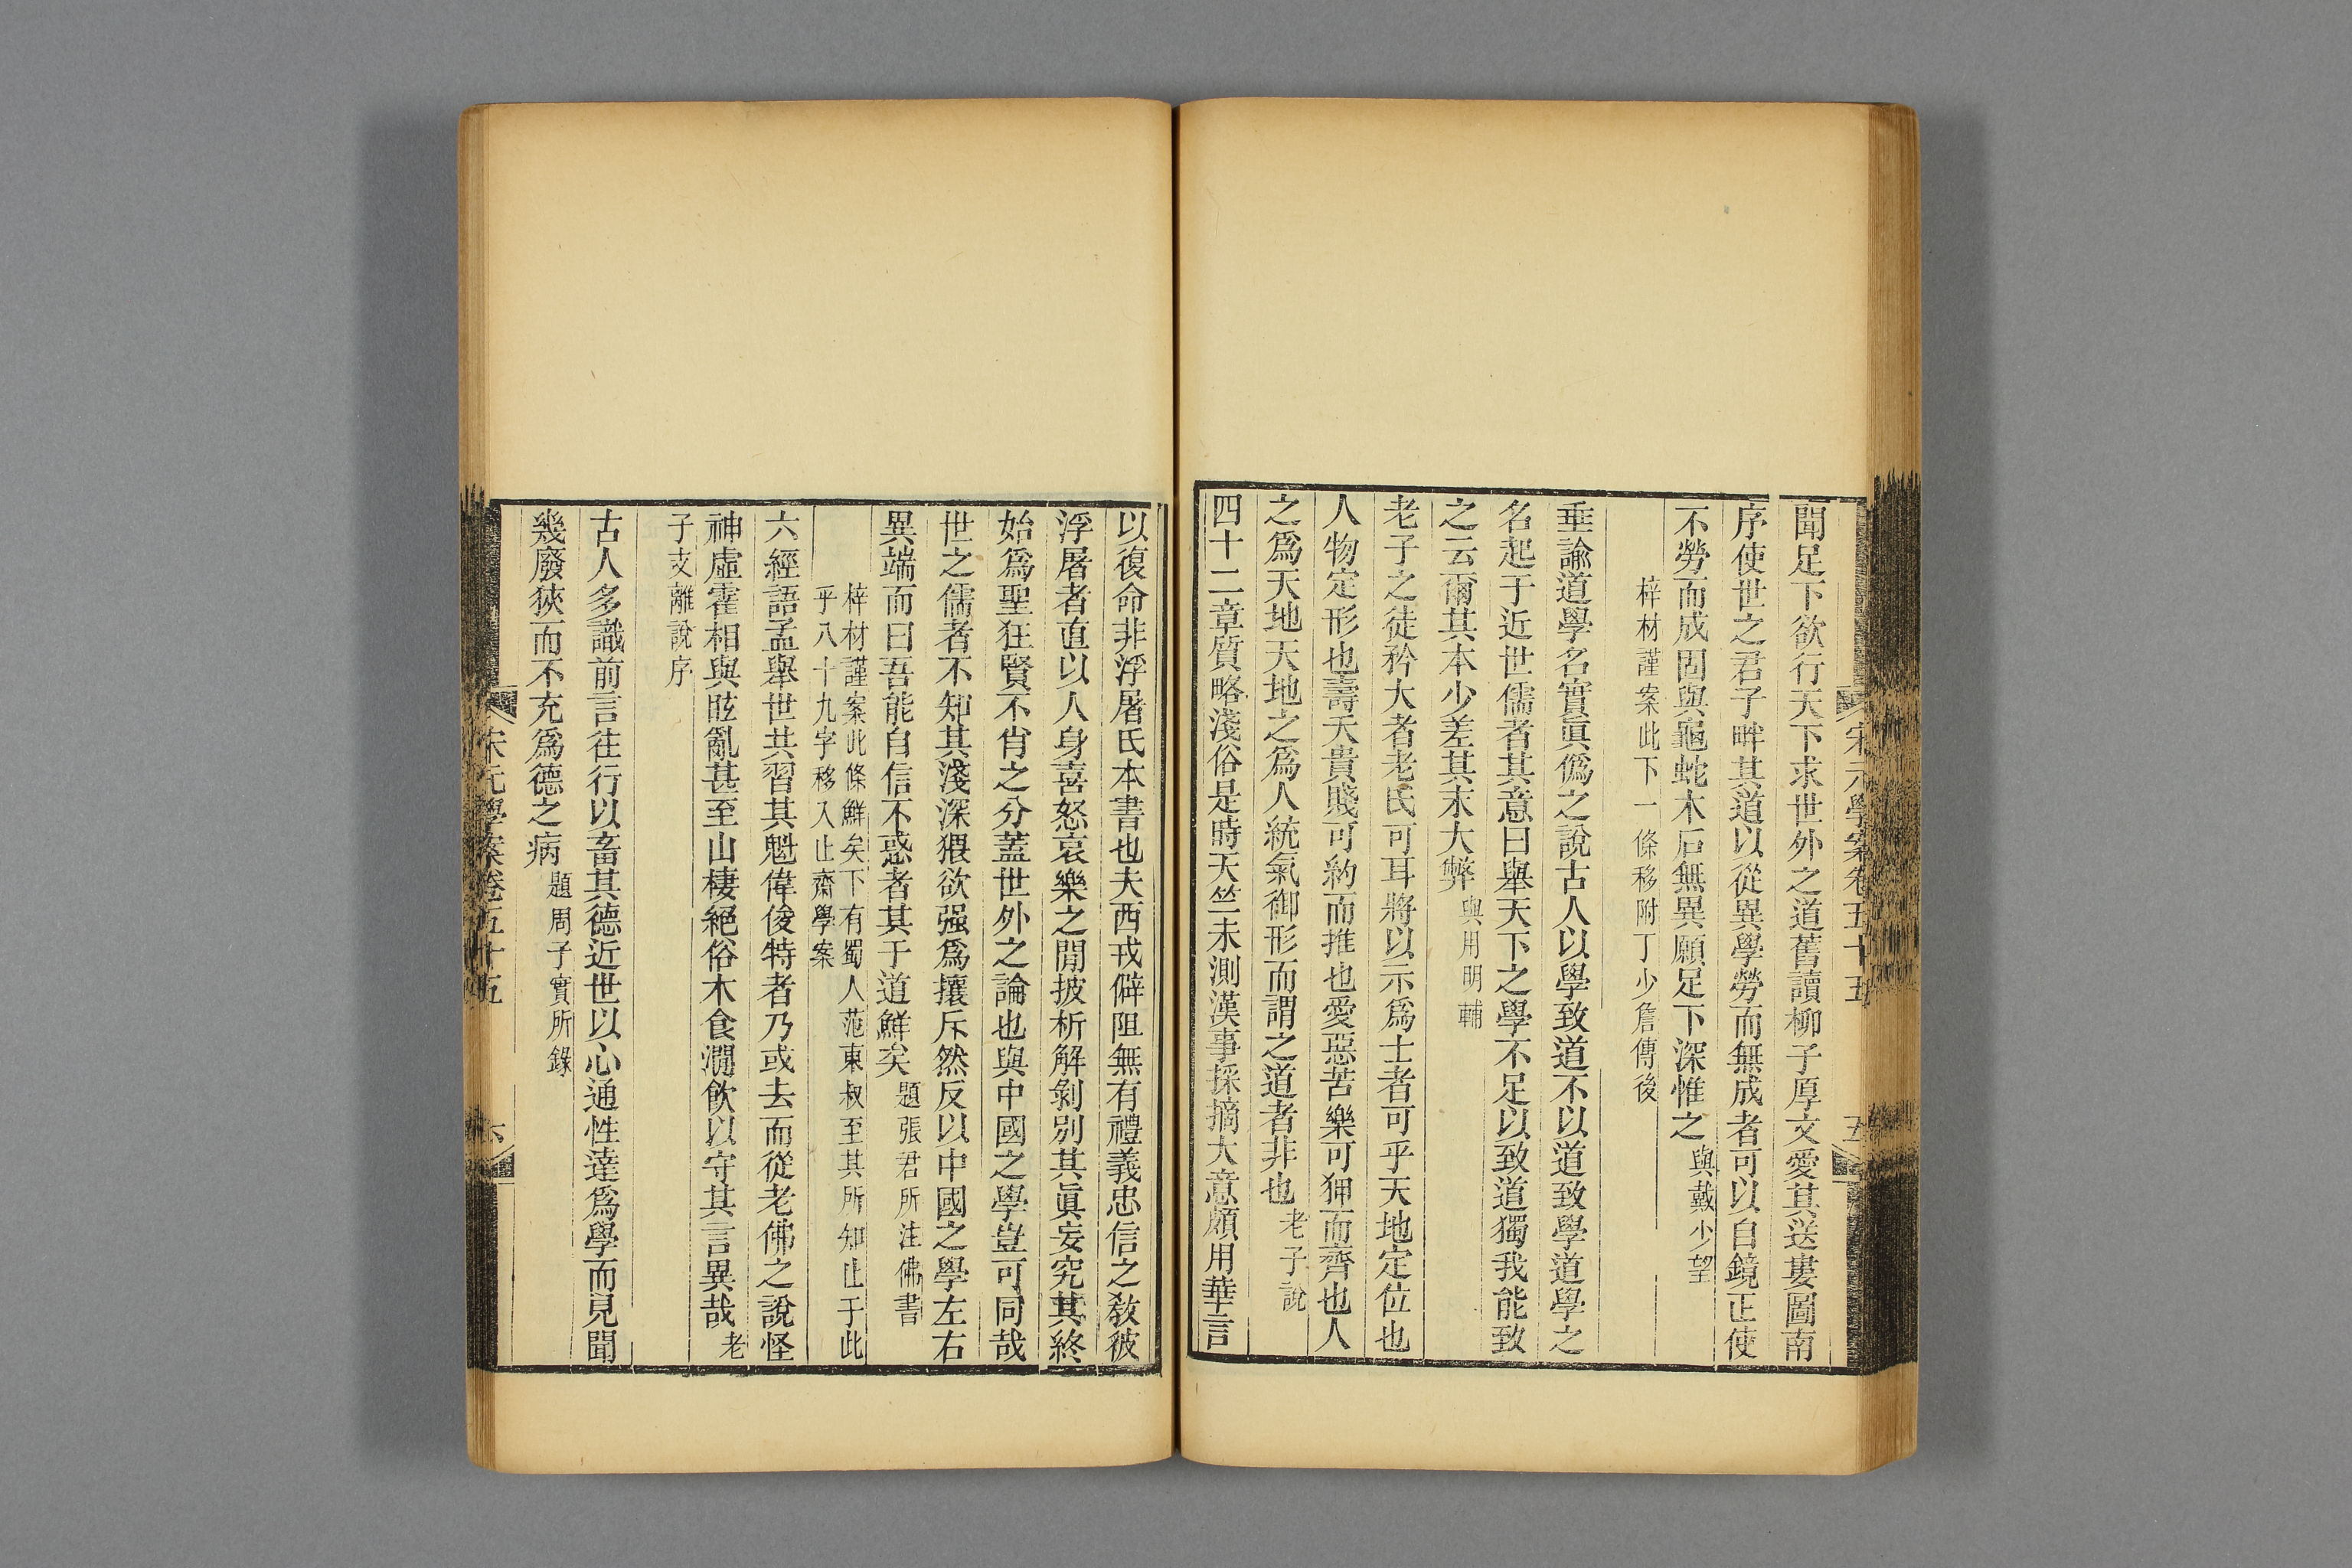 宋元學案卷五十五
五
聞足下欲行天下求世外之道舊讀柳子厚文愛其送婁圖南
序使世之君子畔其道以從異學勞而無成者可以自鏡正使
不勞而成固與龜蛇木石無異願足下深惟之與戴少望
梓材謹案此下一條移附丁少詹傳後
垂諭道學名實眞僞之說古人以學致道不以道致學道學之
名起于近世儒者其意曰舉天下之學不足以致道獨我能致
之云爾其本少差其末大弊與用明輔
老子之徒矜大者老氏可耳將以示爲士者可乎天地定位也
人物定形也壽夭貴賤可約而推也愛惡苦樂可狎而齊也人
之爲天地天地之爲人統氣御形而謂之道者非也老子說
四十二章質略淺俗是時天竺未測漢事採摘大意頗用華言
以復命非浮屠氏本書也夫西戎僻阻無有禮義忠信之敎彼
浮屠者直以人身喜怒哀樂之閒披析解剝別其眞妄究其終
始爲聖狂賢不肖之分蓋世外之論也與中國之學豈可同哉
世之儒者不知其淺深猥欲强爲攘斥然反以中國之學左右
異端而曰吾能自信不惑者其于道鮮矣題張君所注佛書
梓材謹案此條鮮矣下有蜀人范東叔至其所知止于此
乎八十九字移入止齋學案
六經語孟舉世共習其魁偉俊特者乃或去而從老佛之說怪
神虛霍相與眩亂甚至山棲絕俗木食澗飮以守其言異哉老
子支離說序
古人多識前言往行以畜其德近世以心通性達爲學而見聞
幾廢狹而不充爲德之病題周子實所錄
宋元學案卷五十五